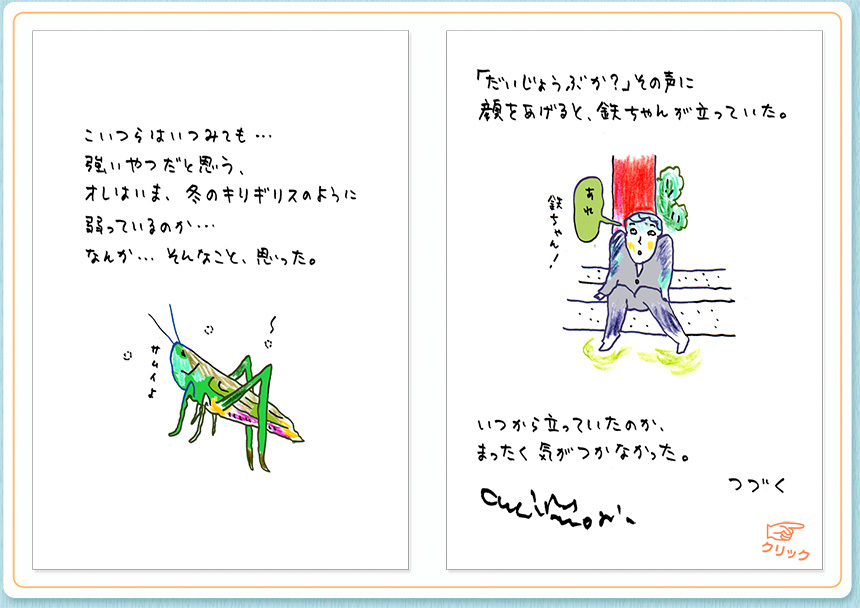 こいつらはいつみても…
強いやつだと思う、
オレはいま、冬のキリギリスのように
弱っているのか…
なんか…そんなこと、思った。
サムイよ
「だいじょうぶか？」その声に
顔をあげると、鉄ちゃんが立っていた。
あれ
鉄ちゃん！
いつから立っていたのか、
まったく気がつかなかった。
つづく
クリック